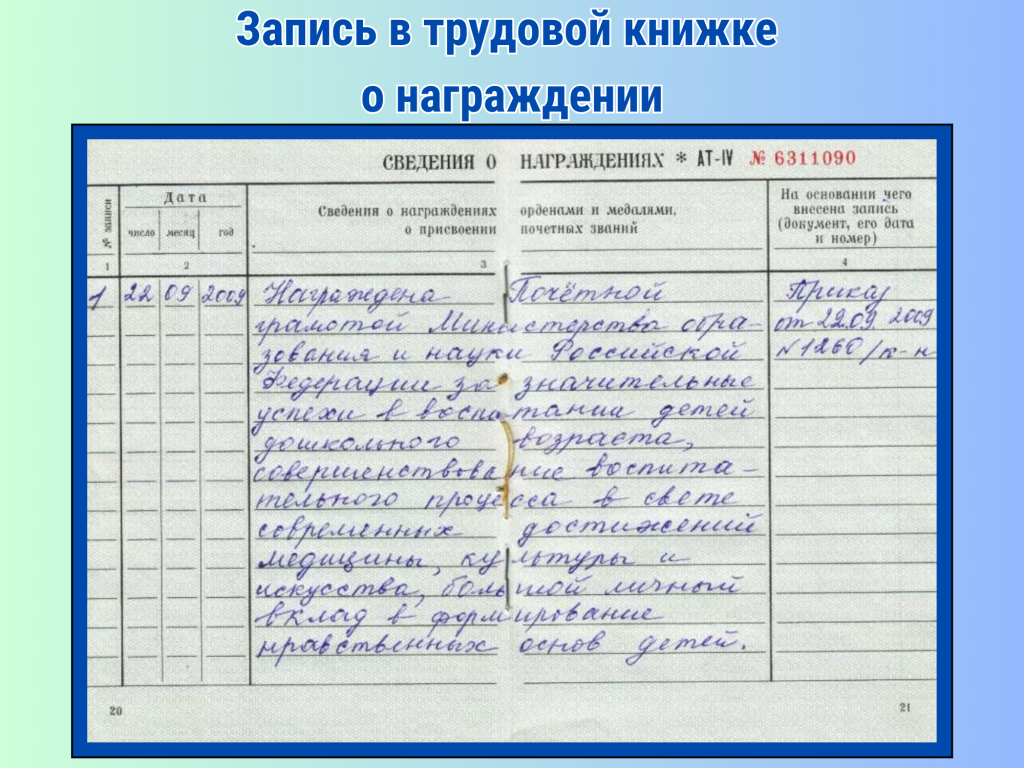 Запись в трудовой книжке
о награждении
СВЕДЕНИЯ О НАГРАЖДЕНИЯХ * АТ-IV № 6311090
№ записи
Дата
число месяц год
Сведения о награждениях орденами и медалями,
о присвоении почетных званий
На основании чего
внесена запись
(документ, его дата
и номер)
1 2 3 4
1 22 09 2009 Награждена Почётной Приказ
грамотой Министерства обра- от 22.09 2009
зования и науки Российской №1260/к-н
Федерации за значительные
успехи в воспитании детей
дошкольного возраста,
совершенствование воспита-
тельного процесса в свете
современных достижений
медицины, культуры и
искусства, большой личный
вклад в формирование
нравственных основ детей.
20 21